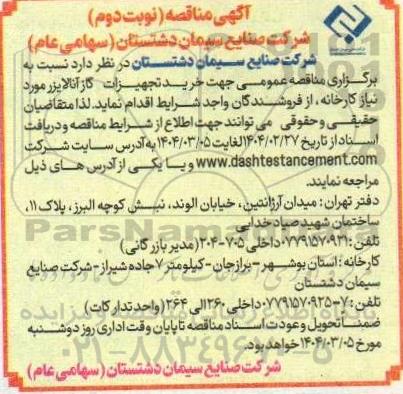 آگهی مناقصه (نوبت دوم)
شرکت صنایع سیمان دشتستان (سهامی عام)
شرکت صنایع سیمان دشتستان در نظر دارد نسبت به
برگزاری مناقصه عمومی جهت خرید تجهیزات گاز آنالایزر مورد
نیاز کارخانه، از فروشندگان واجد شرایط اقدام نماید. لذا متقاضیان
حقیقی و حقوقی می توانند جهت اطلاع از شرایط مناقصه و دریافت
اسناد از تاریخ ۱۴۰۴/۰۲/۲۷ لغایت ۱۴۰۴/۰۳/۰۵ به آدرس سایت شرکت
www.dashtestancement.com و یا یکی از آدرس های ذیل
مراجعه نمایند.
دفتر تهران: میدان آرژانتین، خیابان الوند، نبش کوچه البرز، پلاک ۱۱،
ساختمان شهید صیاد خدایی
تلفن: ۰۷۷۹۱۵۷۰۹۲۱ داخلی ۷۰۵-۲۰۴ (مدیر بازرگانی)
کارخانه: استان بوشهر - برازجان - کیلومتر ۷ جاده شیراز - شرکت صنایع
سیمان دشتستان
تلفن: ۷-۰۷۷۹۱۵۷۰۹۲۵ داخلی ۲۶۰ الی ۲۶۴ (واحد تدارکات)
ضمنا تحویل و عودت اسناد مناقصه تا پایان وقت اداری روز دوشنبه
مورخ ۱۴۰۴/۰۳/۰۵ خواهد بود.
شرکت صنایع سیمان دشتستان (سهامی عام)